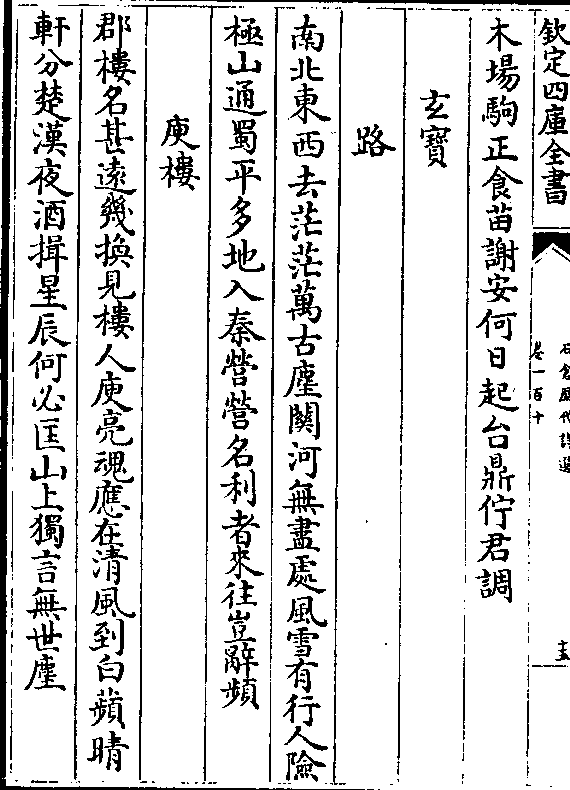 欽定四庫全書
石倉歷代詩選
卷一百十
木場駒正食苗謝安何日起台鼎佇君調
玄寶
路
南北東西去茫茫萬古塵關河無盡處風雪有行人險
極山通蜀平多地入秦營營名利者來往豈辭頻
庾樓
郡樓名甚遠幾換見樓人庾亮魂應在清風到白蘋晴
軒分楚漢夜酒揖星辰何必匡山上獨言無世塵